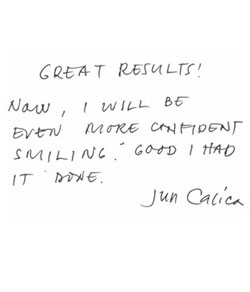 GREAT RESULTS!
NOW, I WILL BE
EVEN MORE CONFIDENT
SMILING. GOOD I HAD
IT DONE.
Jun Calica